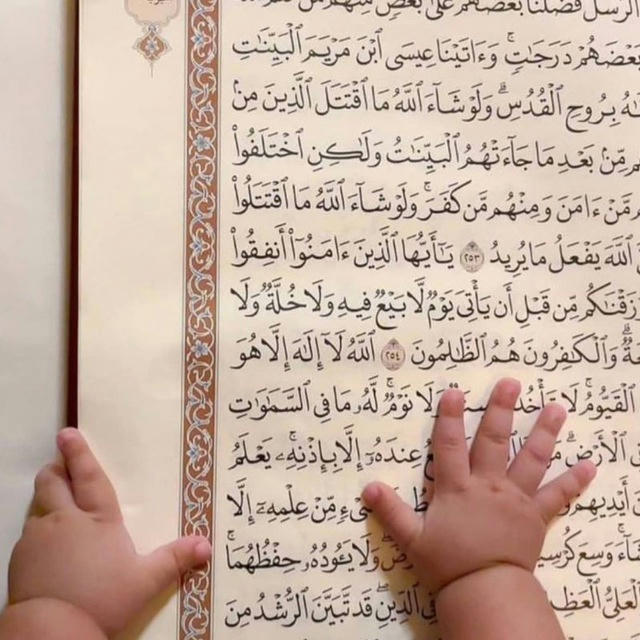 ٱلرُّسُلُ فَضَّلْنَا بَعْضَهُمْ عَلَىٰ بَعْضٍ مِّنْهُم مَّن
بَعْضَهُمْ دَرَجَٰتٍ ۚ وَءَاتَيْنَا عِيسَى ٱبْنَ مَرْيَمَ ٱلْبَيِّنَٰتِ
بِرُوحِ ٱلْقُدُسِ ۗ وَلَوْ شَآءَ ٱللَّهُ مَا ٱقْتَتَلَ ٱلَّذِينَ مِنۢ
مِّنۢ بَعْدِ مَا جَآءَتْهُمُ ٱلْبَيِّنَٰتُ وَلَٰكِنِ ٱخْتَلَفُوا۟
مَّنْ ءَامَنَ وَمِنْهُم مَّن كَفَرَ ۚ وَلَوْ شَآءَ ٱللَّهُ مَا ٱقْتَتَلُوا۟
ٱللَّهَ يَفْعَلُ مَا يُرِيدُ ٢٥٣ يَٰٓأَيُّهَا ٱلَّذِينَ ءَامَنُوٓا۟ أَنفِقُوا۟
رَزَقْنَٰكُم مِّن قَبْلِ أَن يَأْتِىَ يَوْمٌ لَّا بَيْعٌ فِيهِ وَلَا خُلَّةٌ وَلَا
وَٱلْكَٰفِرُونَ هُمُ ٱلظَّٰلِمُونَ ٢٥٤ ٱللَّهُ لَآ إِلَٰهَ إِلَّا هُوَ
ٱلْقَيُّومُ ۚ لَا وَلَا نَوْمٌ ۚ لَّهُۥ مَا فِى ٱلسَّمَٰوَٰتِ
ٱلْأَرْضِ ۗ عِندَهُۥٓ إِلَّا بِإِذْنِهِۦ ۚ يَعْلَمُ
أَيْدِيهِمْ مِّنْ عِلْمِهِۦٓ إِلَّا
شَآءَ ۚ وَسِعَ وَلَا يَـُٔودُهُۥ حِفْظُهُمَا ۚ
ٱلْعَلِىُّ فِى ٱلدِّينِ ۖ قَد تَّبَيَّنَ ٱلرُّشْدُ مِنَ